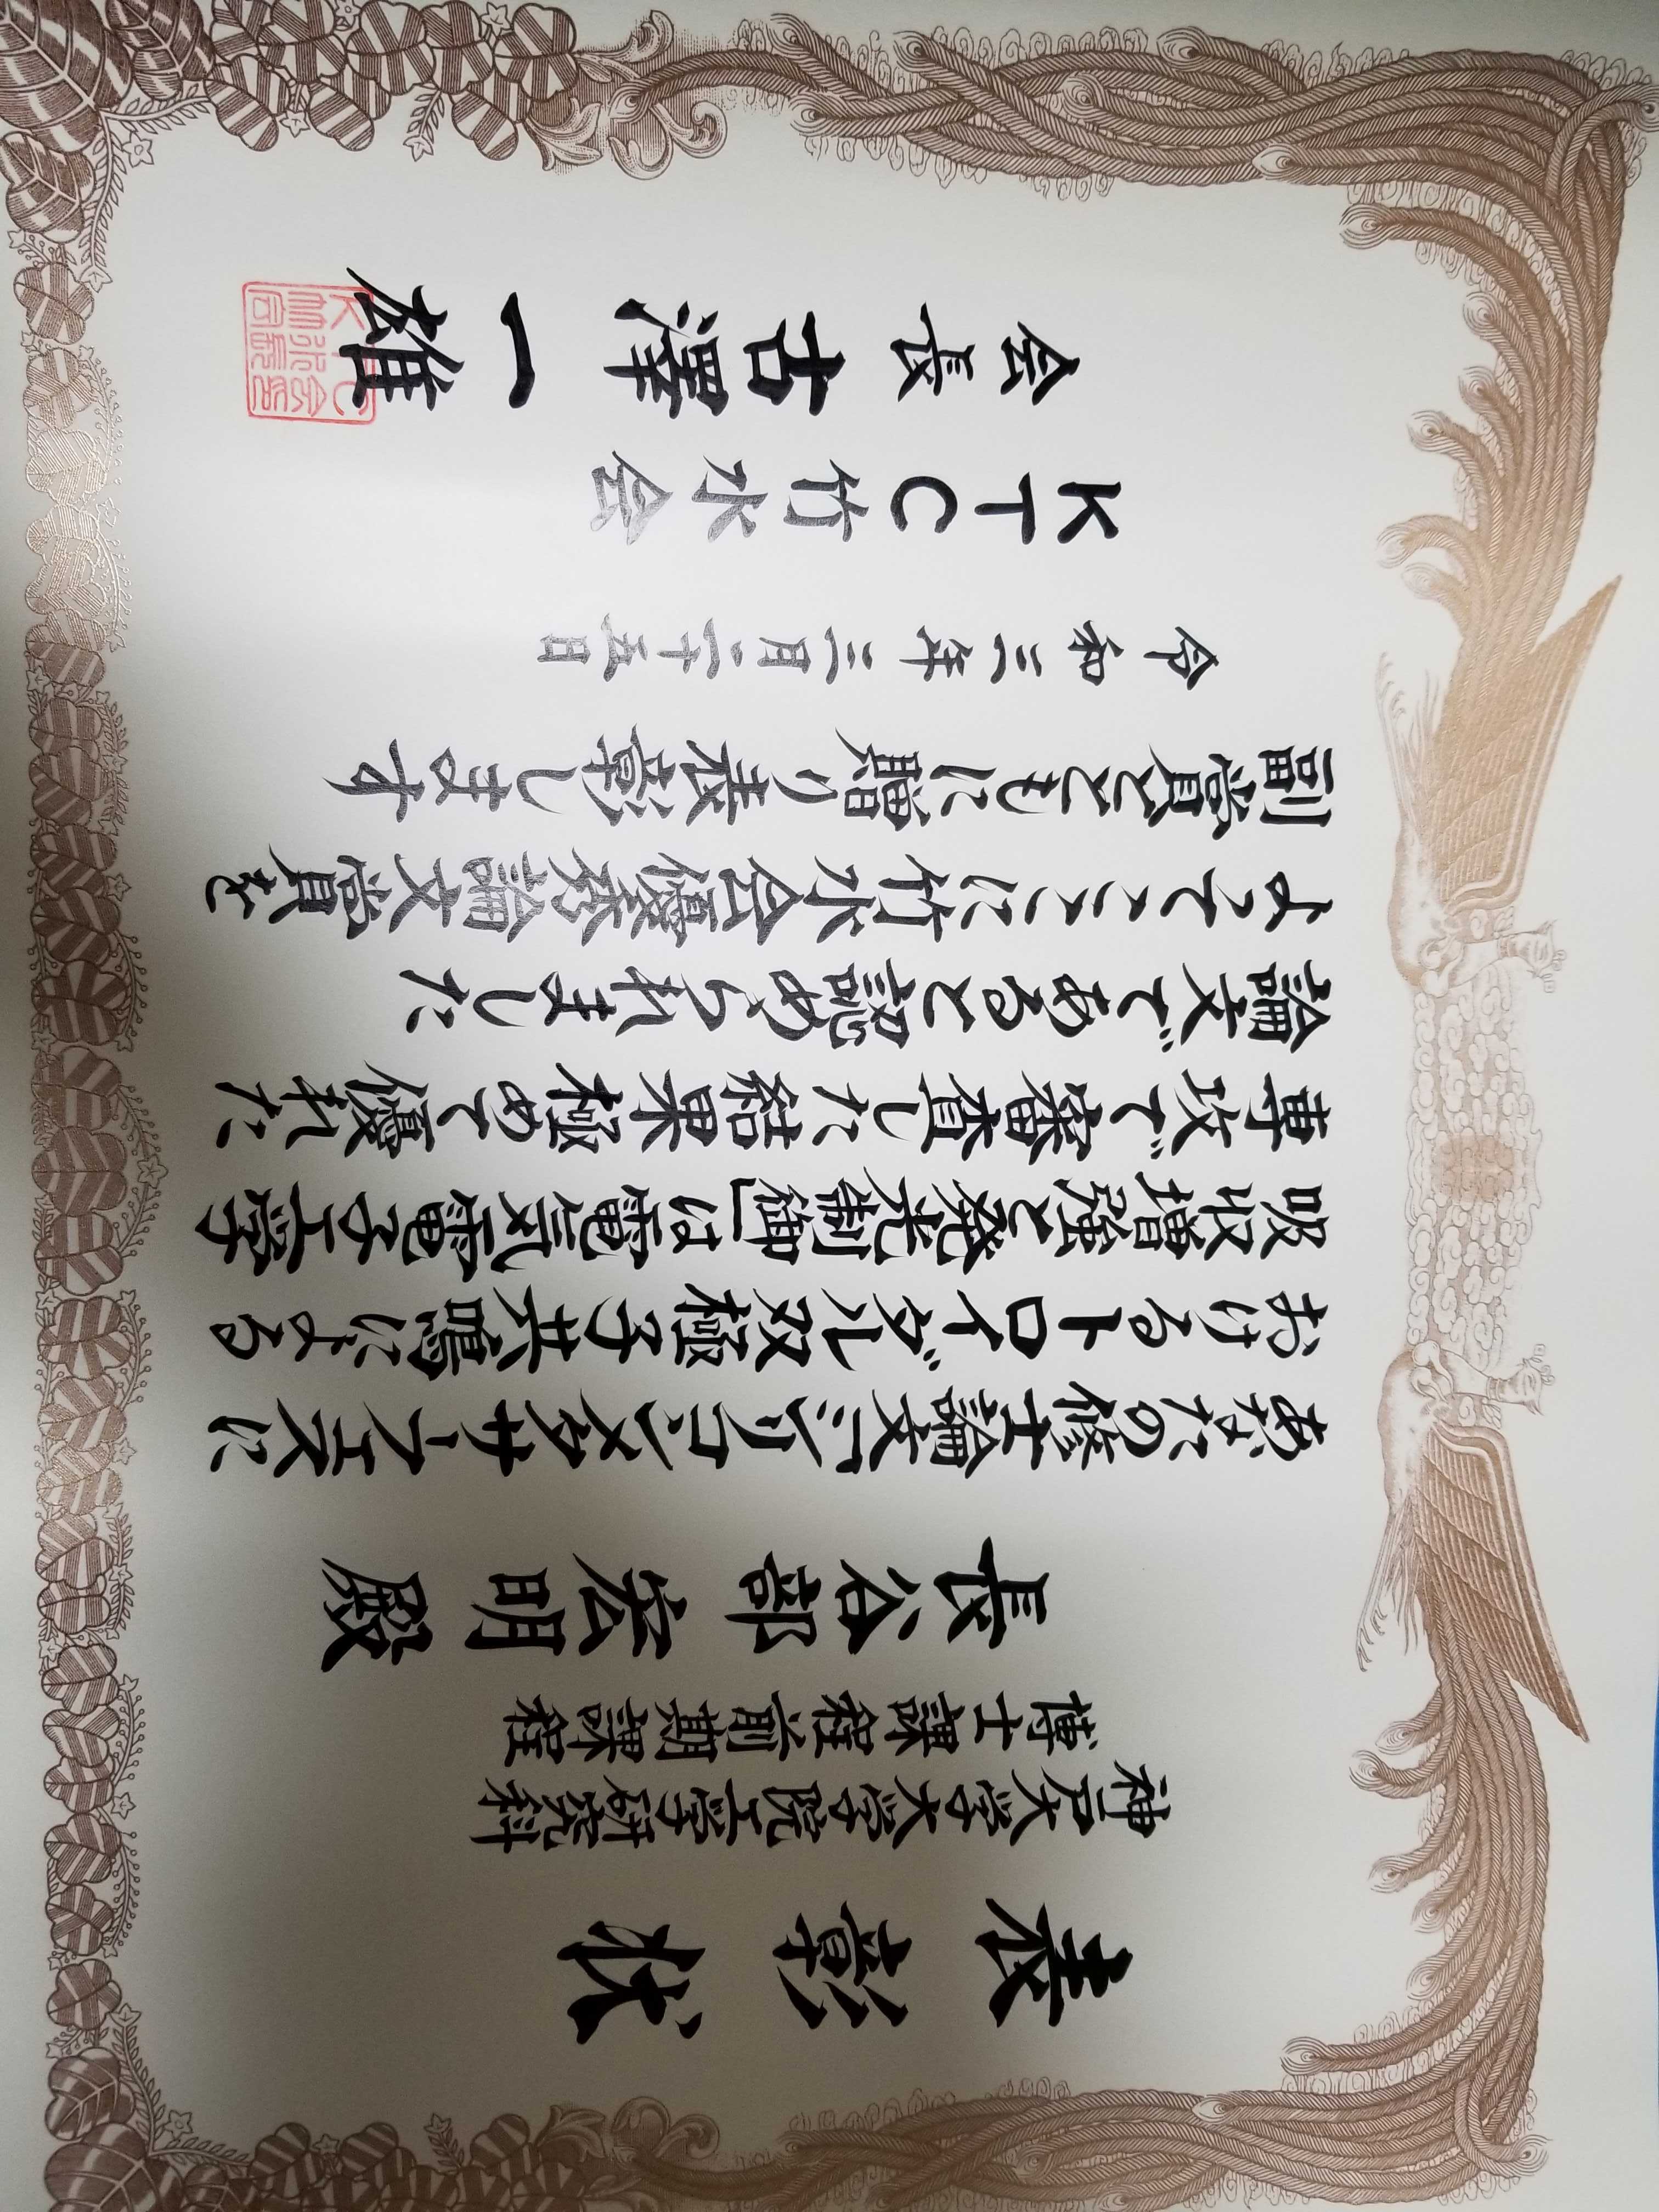 表彰状
神戸大学大学院工学研究科
博士課程前期課程
長谷部宏明殿
あなたの修士論文「シリコンメタサーフェスに
おけるトロイダル双極子共鳴による
吸収増強と発光制御」は電気電子工学
専攻で審査した結果極めて優れた
論文であると認められました
よってここに竹水会優秀論文賞を
副賞とともに贈り表彰します
令和三年三月二十五日
KTC竹水会
会長 古澤一雄